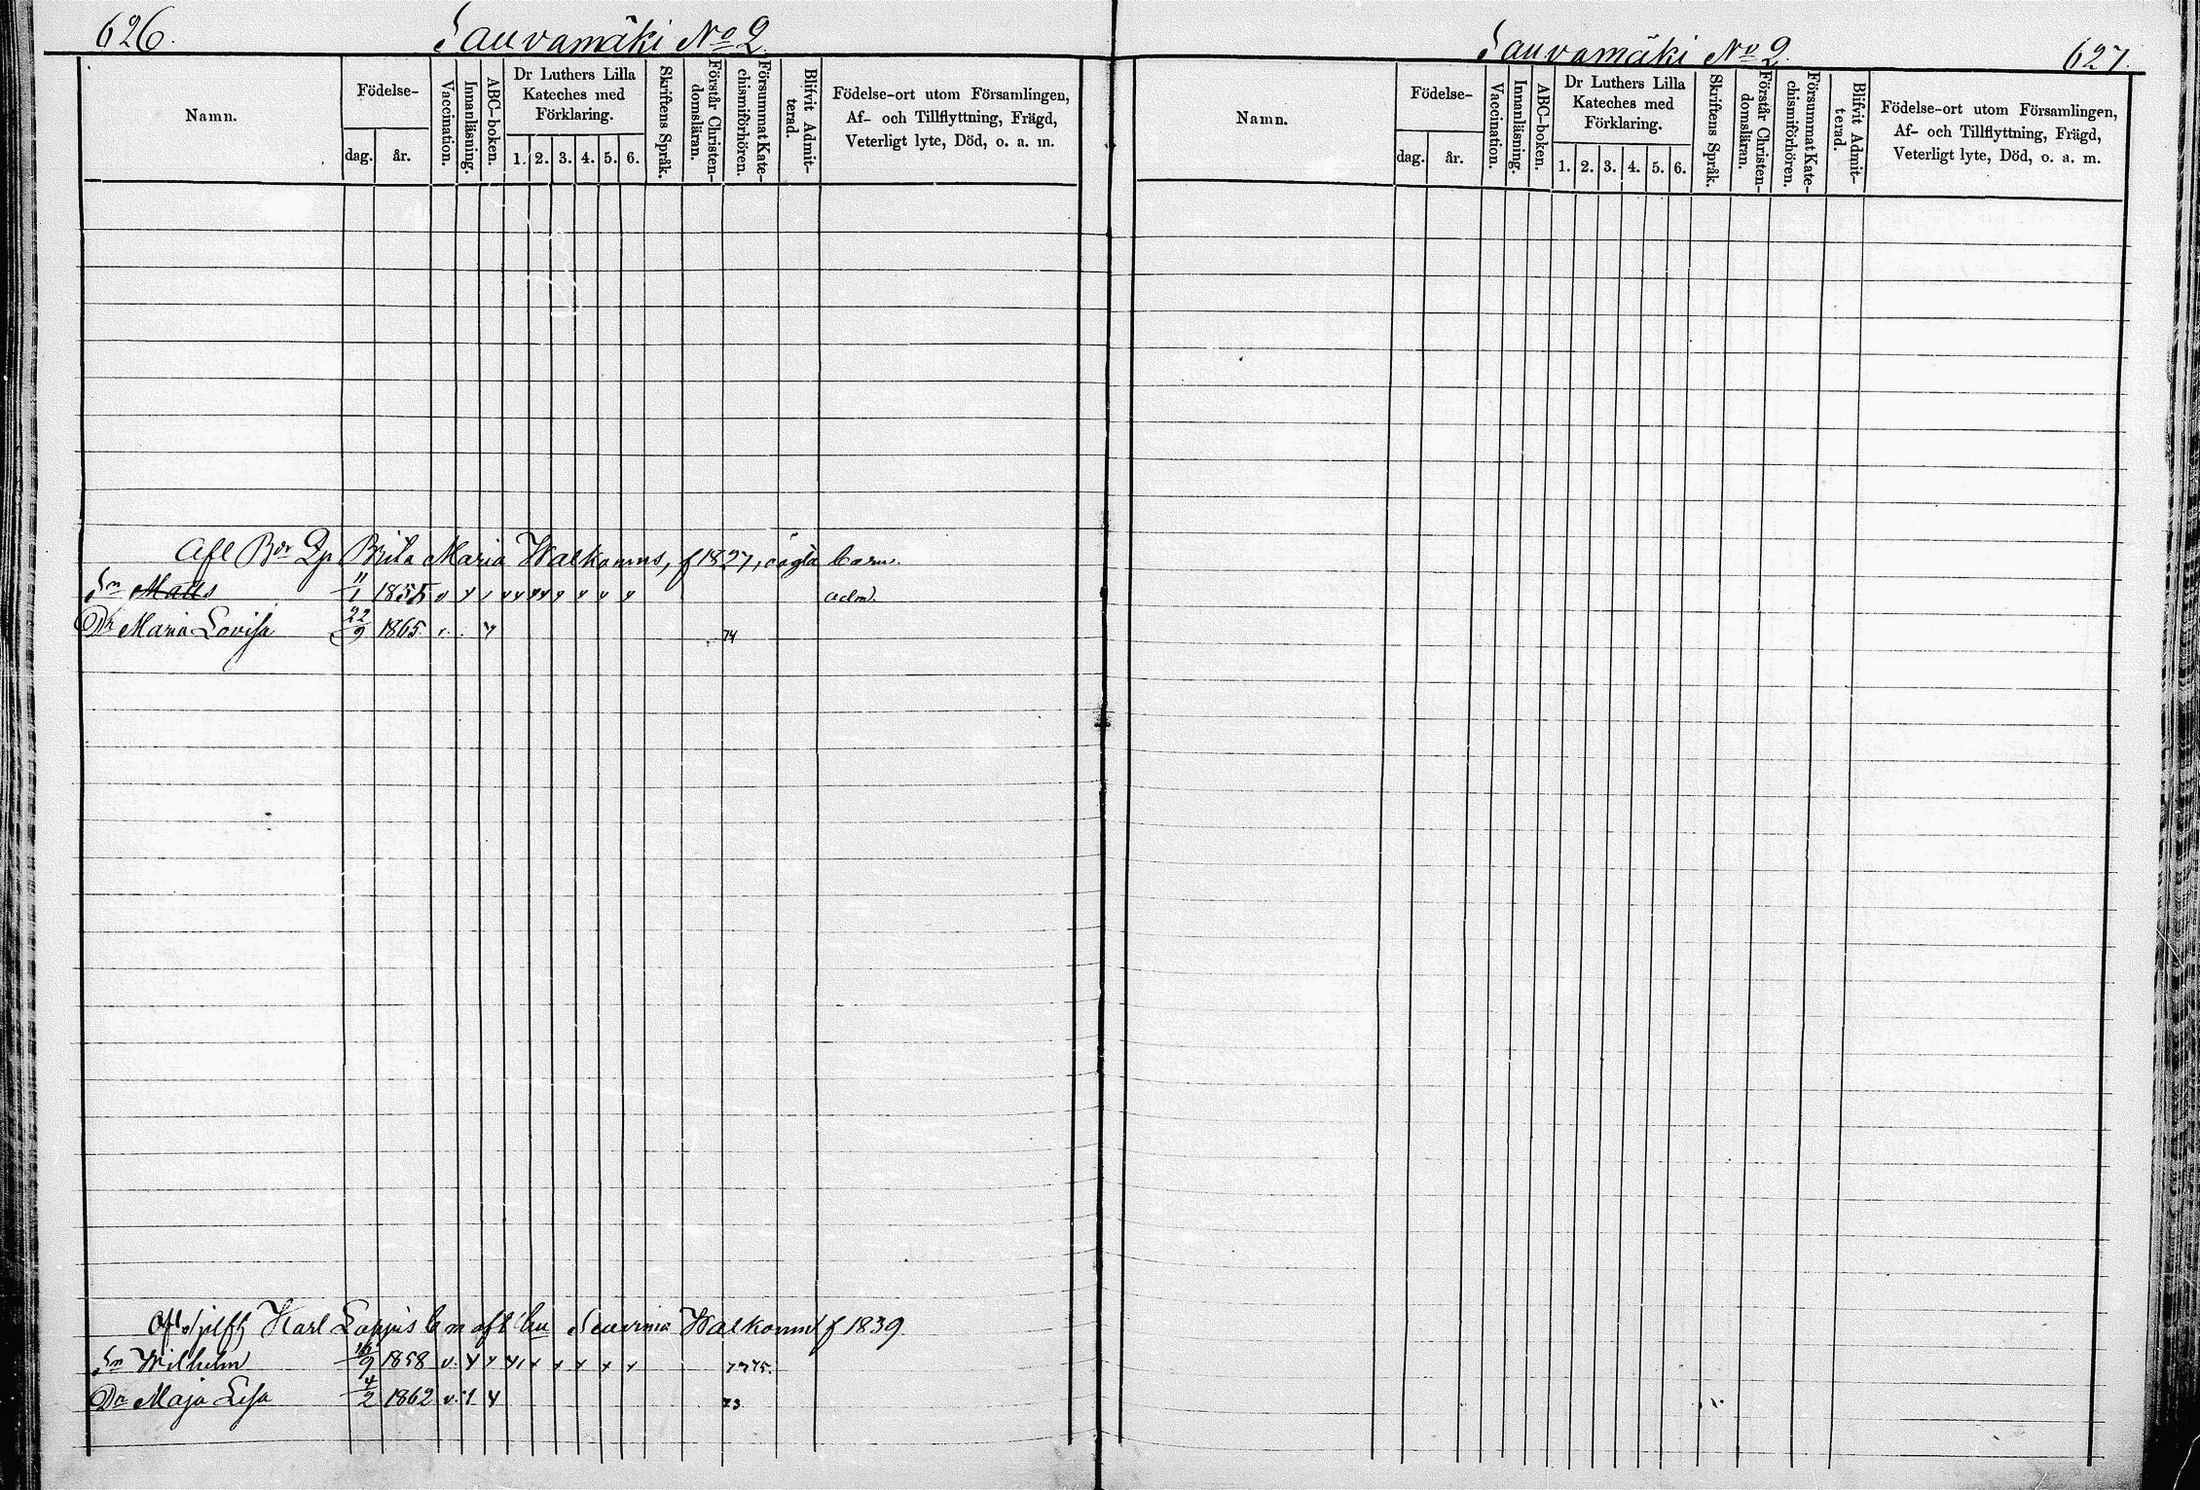 626.
Sauvamäki No 2
Namn.
Födelse-
dag.
år.
Vaccination.
Innanläsning.
ABC-boken.
Dr Luthers Lilla
Kateches med
Förklaring.
1. 2. 3. 4. 5. 6.
Skriftens Språk.
Förstår Christen-
domsläran.
Försummat Kate-
chismiförhören.
Blifvit Admit-
terad.
Födelse-ort utom Församlingen,
Af- och Tillflyttning, Frägd,
Veterligt lyte, Död, o. a. m.
Afl Brita Maria Walkamas, f 1827, oägta barn.
Sn Matts 11/1 1855 v adm.
Dr Maria Lovisa 22/9 1865 74
Karl Walkama f 1839
Sn Wilhelm 1858 v
Dr Maja Lisa 4/2 1862 v. 73
Sauvamäki No 2.
627.
Namn.
Födelse-
dag.
år.
Vaccination.
Innanläsning.
ABC-boken.
Dr Luthers Lilla
Kateches med
Förklaring.
1. 2. 3. 4. 5. 6.
Skriftens Språk.
Förstår Christen-
domsläran.
Försummat Kate-
chismiförhören.
Blifvit Admit-
terad.
Födelse-ort utom Församlingen,
Af- och Tillflyttning, Frägd,
Veterligt lyte, Död, o. a. m.